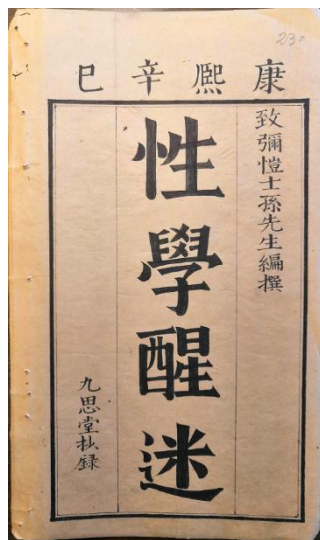 230
康熙辛巳
致彌愷士孫先生編撰
性學醒迷
九思堂抄録